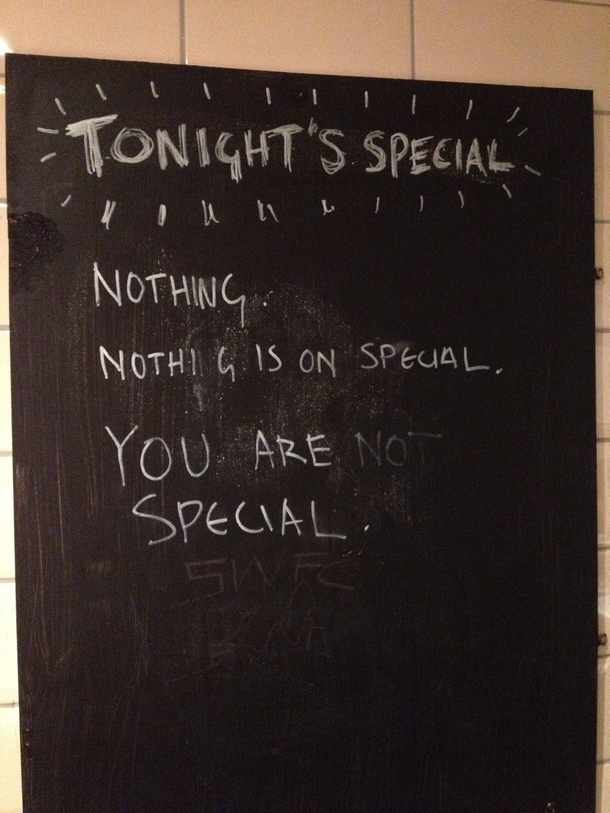 TONIGHT'S SPECIAL
NOTHING.
NOTHI G IS ON SPECIAL.
YOU ARE NOT
SPECIAL.
SWFC